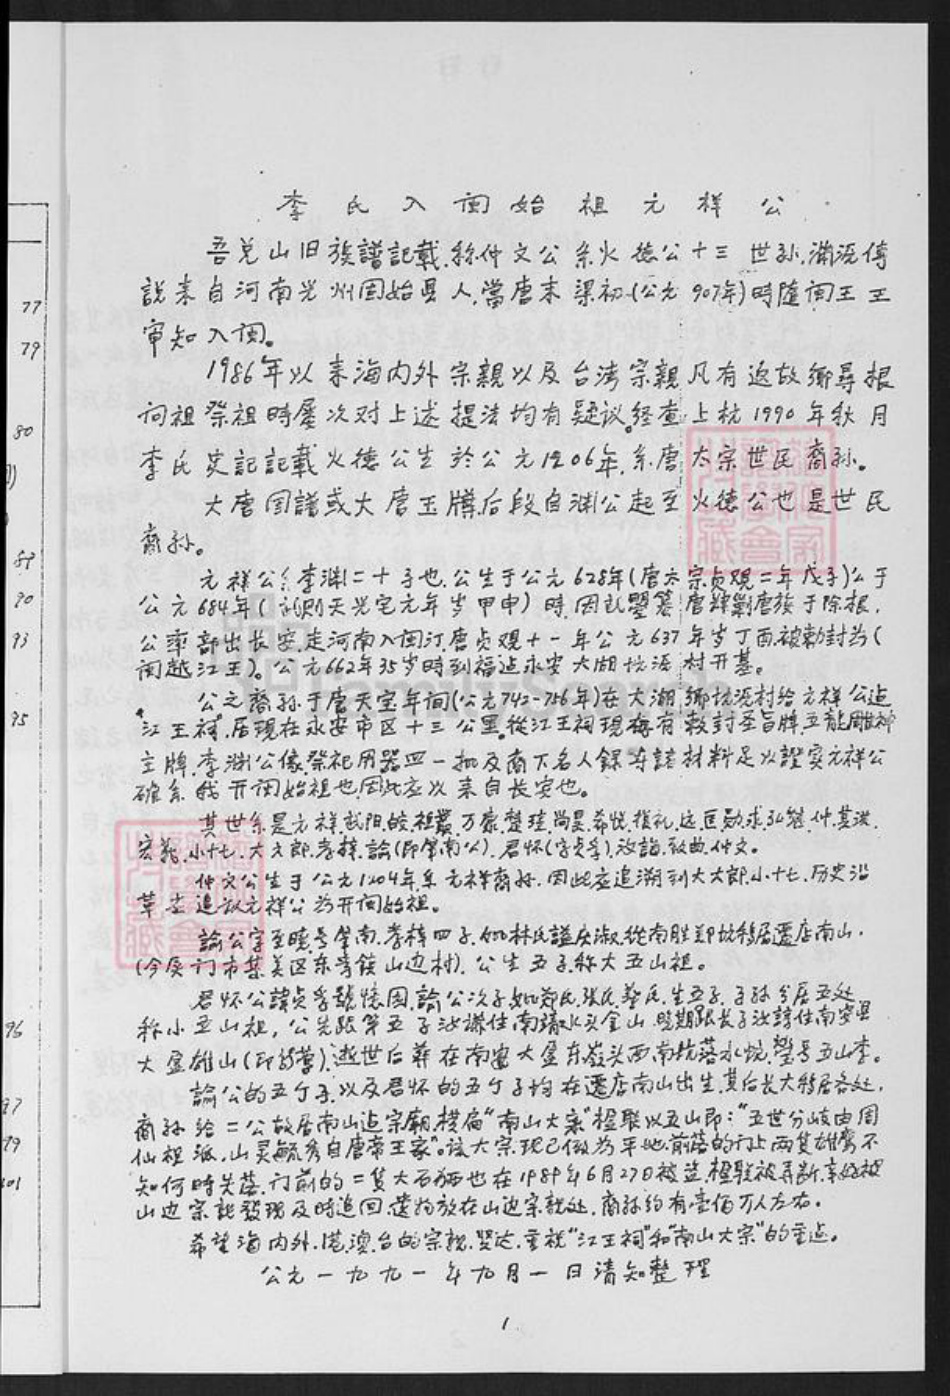 77
79
80
89
90
93
95
96
97
99
101
李氏入闽始祖元祥公
吾兑山旧族譜記載.称仲文公系火德公十三世孙.满流傳
説来自河南光州固始县人.當唐末梁初(公元907年)時隨闽王王
審知入闽。
1986年以来海内外宗親以及台湾宗親凡有返故鄉尋根
问祖祭祖時屡次对上述提法均有疑议.经查上杭1990年秋月
李氏史記記載火德公生於公元1206年.系唐太宗世民裔孙。
大唐国譜或大唐玉牒后段自渊公起至火德公也是世民
裔孙。
元祥公系李渊二十子也.公生于公元628年(唐太宗贞观二年戊子)公于
公元684年(武则天光宅元年岁甲申)時.因乱曌篡唐肆剿唐族于除根.
公率部出长安走河南入闽汀唐贞观十一年公元637年岁丁酉.被勅封为(
闽越江王)。公元662年35岁時到福建永安大湖坑源村开基。
公之裔孙于唐天宝年间(公元742-756年)在大湖鄉坑源村给元祥公追
"江王祠".居现在永安市区十三公里.從江王祠现存有敕封圣旨牌.五龍雕神
主牌.李渊公像.祭祀用器四一批及裔下名人錄等諸材料足以證实元祥公
確系我开闽始祖也.因此应以来自长安也。
其世系是元祥.皎.祖叢.万康.楚瑾.尚昊.希悦.仲.其洪.
宏義.小十七.大大郎.孝梓.論(即肇南公).君怀(字贞孚).汝誨.致曲.仲文。
仲文公生于公元1204年系元祥裔孙.因此应追溯到大大郎.小十七.历史沿
革应追认元祥公为开闽始祖。
論公字至曉号肇南.孝梓四子.妣林氏謚辰淑.從南胜郑故移居遷店南山.
(今厦门市集美区东孚鎮山边村).公生五子.称大五山祖。
君怀公諱贞孚號懐園.論公次子妣郑氏.张氏.蔡氏.生五子.子孙分居五处.
称小五山祖.公先跟第五子汝謙住南靖水头金山.晚期跟长子汝諄住南安县
大盈雄山(即芸营).逝世后葬在南安大盈东岭头西南坑落水蛇.瑩号五山李。
論公的五个子.以及君怀的五个子均在遷店南山出生.其后长大移居各处.
裔孙给二公故居南山追宗廟.横扁"南山大宗"楹联以五山即:"五世分岐由周
仙祖派.山灵毓秀自唐帝王家"。该大宗.现已做为平地.前落的门上两隻雄鹰不
知何時失落.门前的二隻大石狮也在1989年6月27日被盗.楹联被弄断.幸好被
山边宗親發现及時追回.遗物放在山边宗親处.裔孙约有壹佰万人左右。
希望海内外.港.澳.台的宗親.賢达.重視"江王祠"和"南山大宗"的重追。
公元一九九一年九月一日清知整理
1